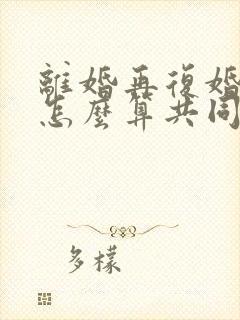 離婚再復婚
怎麼算共同
多樣